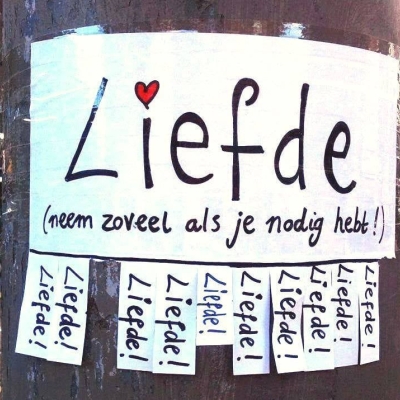 Liefde
(neem zoveel als je nodig hebt!)
Liefde!
Liefde!
Liefde!
Liefde!
Liefde!
Liefde!
Liefde!
Liefde!
Liefde!
Liefde!